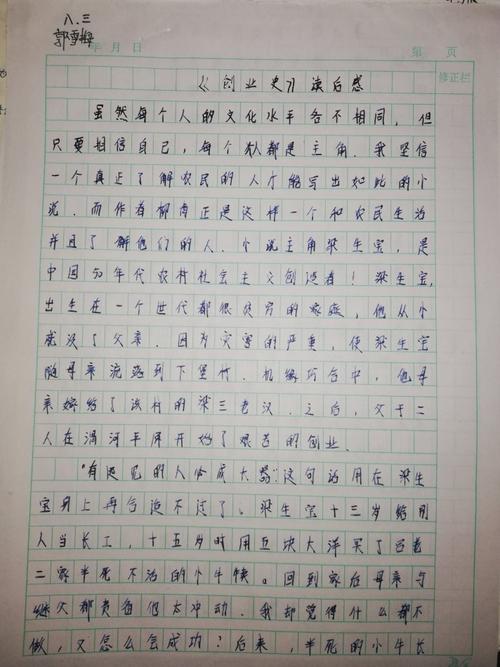 八.三
郭雪梅
年 月 日
第 页
修正栏
《创业史》读后感
虽然每个人的文化水平各不相同，但
只要相信自己，每个人都是主角。我坚信
一个真正了解农民的人才能写出如此的小
说。而作者柳青正是这样一个和农民生活
并且了解他们的人。小说主角梁生宝，是
中国50年代农村社会主义创造者！梁生宝
出生在一个世代都很贫穷的家庭，他从小
就没了父亲。因为灾害的严重，使梁生宝
随母亲流落到下堡村。机缘巧合中，他母
亲嫁给了该村的梁三老汉。之后，父子二
人在渭河平原开始了艰苦的创业。
"有远见的人会成大器"这句话用在梁生
宝身上再合适不过了。梁生宝十三岁给财
人当长工，十五岁时用五块大洋买了吕老
二家半死不活的小牛犊。回到家后母亲与
继父都责备他太冲动。我却觉得什么都不
做，又怎么会成功？后来，半死的小牛长